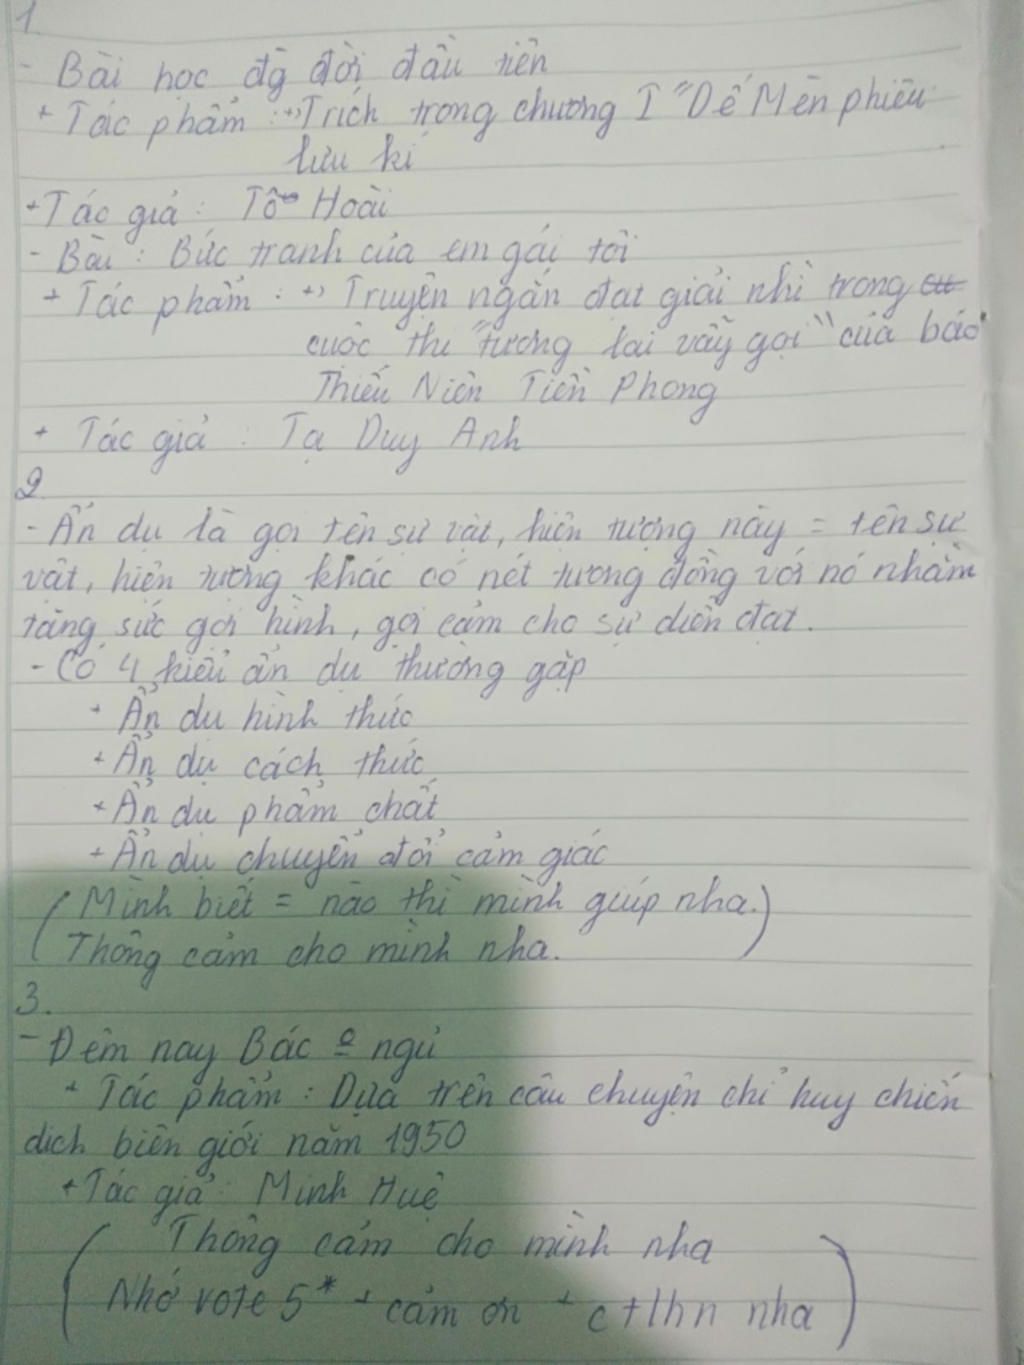 1.
- Bài học đg đời đầu tiên
+ Tác phẩm : +, Trích trong chương I "Dế Mèn phiêu
lưu kí
+ Tác giả : Tô Hoài
- Bài : Bức tranh của em gái tôi
+ Tác phẩm : +, Truyện ngắn đạt giải nhì trong
cuộc thi "tương lai vẫy gọi" của báo
Thiếu Niên Tiền Phong
+ Tác giả : Tạ Duy Anh
2
- Ẩn dụ là gọi tên sự vật, hiện tượng này = tên sự
vật, hiện tượng khác có nét tương đồng với nó nhằm
tăng sức gợi hình, gợi cảm cho sự diễn đạt.
- Có 4 kiểu ẩn dụ thường gặp
+ Ẩn dụ hình thức
+ Ẩn dụ cách thức
+ Ẩn dụ phẩm chất
+ Ẩn dụ chuyển đổi cảm giác
(Mình biết = nào thì mình giúp nha.)
Thông cảm cho mình nha.
3.
- Đêm nay Bác o ngủ
+ Tác phẩm : Dựa trên câu chuyện chỉ huy chiến
dịch biên giới năm 1950
+ Tác giả : Minh Huệ
(Thông cảm cho mình nha
Nhớ vote 5* + cảm ơn + c+lhn nha)